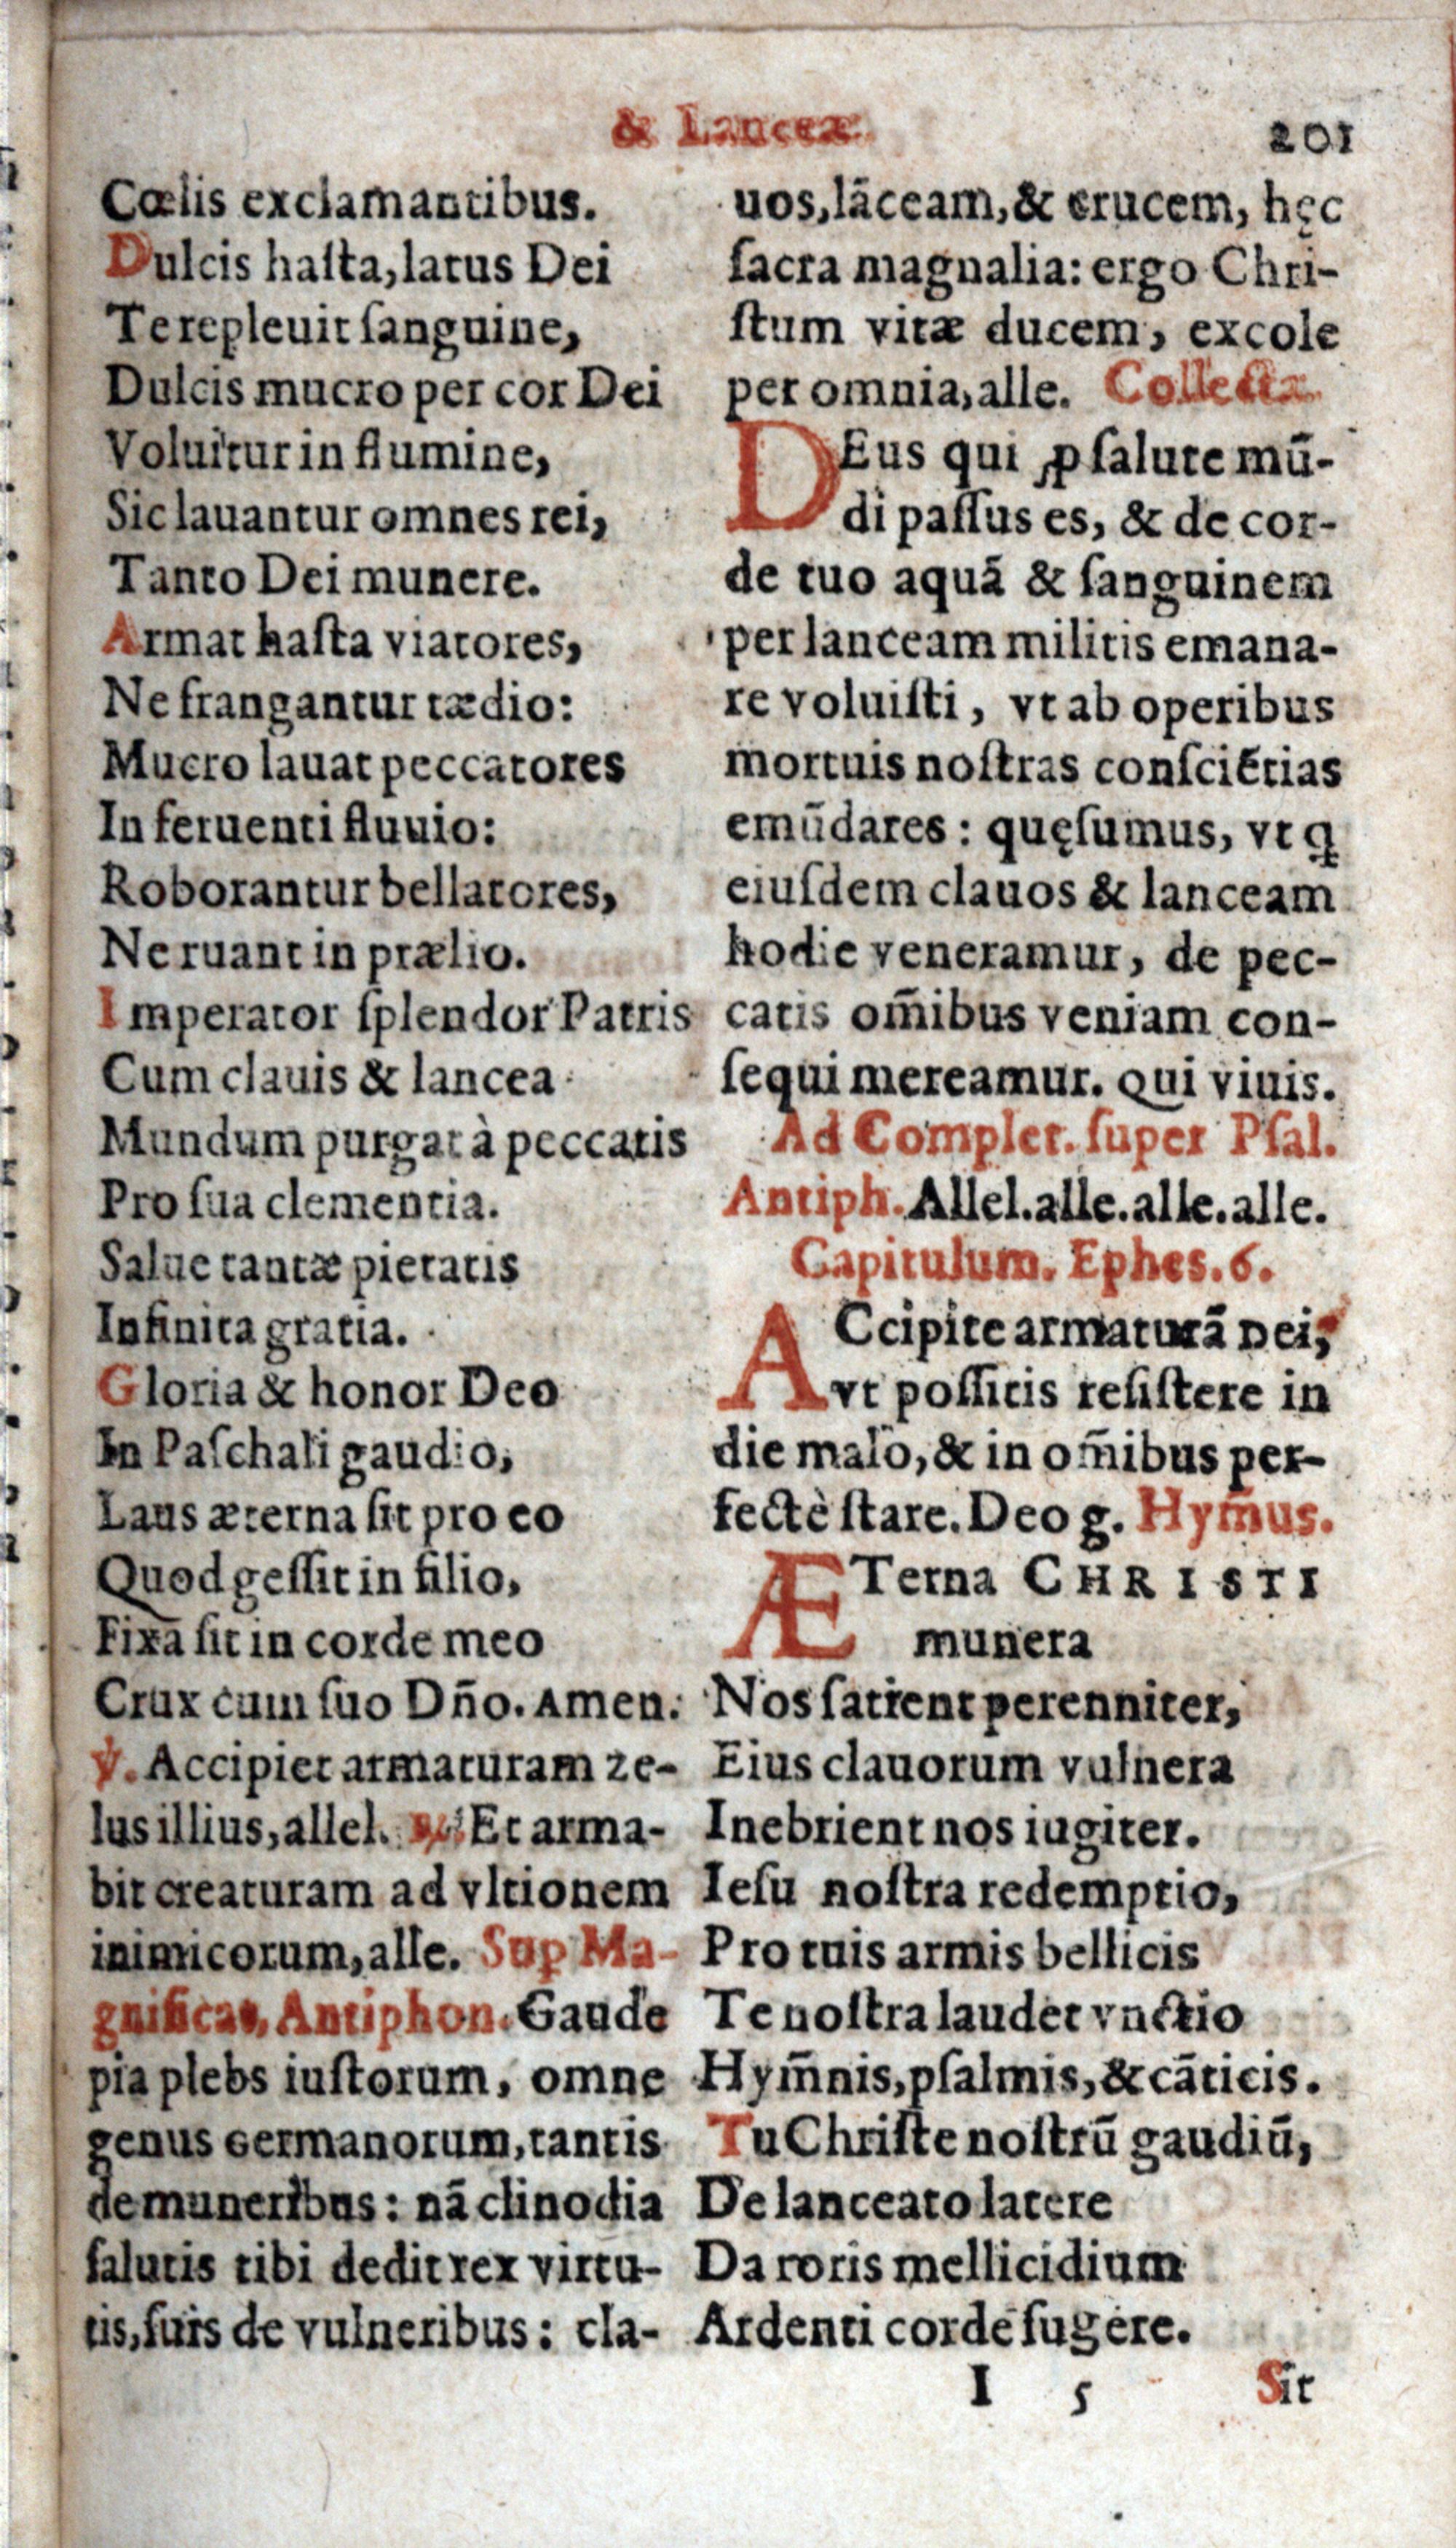 & Lanceæ. 201
Cœlis exclamantibus.
Dulcis haſta, latus Dei
Te repleuit ſanguine,
Dulcis mucro per cor Dei
Voluitur in flumine,
Sic lauantur omnes rei,
Tanto Dei munere.
Armat haſta viatores,
Ne frangantur tædio:
Mucro lauat peccatores
In feruenti fluuio:
Roborantur bellatores,
Ne ruant in prælio.
Imperator ſplendor Patris
Cum clauis & lancea
Mundum purgat à peccatis
Pro ſua clementia.
Salue tantæ pietatis
Infinita gratia.
Gloria & honor Deo
In Paſchali gaudio,
Laus æterna ſit pro eo
Quod geſſit in filio,
Fixa ſit in corde meo
Crux cum ſuo Dño. Amen.
℣. Accipiet armaturam ze-
lus illius, allel. ℟. Et arma-
bit creaturam ad vltionem
inimicorum, alle. Sup Ma-
gnificat, Antiphon. Gaude
pia plebs iuſtorum, omne
genus Germanorum, tantis
de muneribus: nã clinodia
ſalutis tibi dedit rex virtu-
tis, ſuis de vulneribus: cla-
uos, lãceam, & crucem, hęc
ſacra magnalia: ergo Chri-
ſtum vitæ ducem, excole
per omnia, alle. Collecta.
DEus qui ꝓ ſalute mũ-
di paſſus es, & de cor-
de tuo aquã & ſanguinem
per lanceam militis emana-
re voluiſti, vt ab operibus
mortuis noſtras conſciẽtias
emũdares: quęſumus, vt ꝗ
eiuſdem clauos & lanceam
hodie veneramur, de pec-
catis om̃ibus veniam con-
ſequi mereamur. Qui viuis.
Ad Complet. ſuper Pſal.
Antiph. Allel. alle. alle. alle.
Capitulum. Ephes. 6.
ACcipite armaturã Dei,
vt poſſitis reſiſtere in
die malo, & in om̃ibus per-
fectè ſtare. Deo g. Hym̃us.
ÆTerna CHRISTI
munera
Nos ſatient perenniter,
Eius clauorum vulnera
Inebrient nos iugiter.
Ieſu noſtra redemptio,
Pro tuis armis bellicis
Te noſtra laudet vnctio
Hym̃nis, pſalmis, & cãticis.
Tu Chriſte noſtrũ gaudiũ,
De lanceato latere
Da roris mellicidium
Ardenti corde ſugere.
I 5 Sit